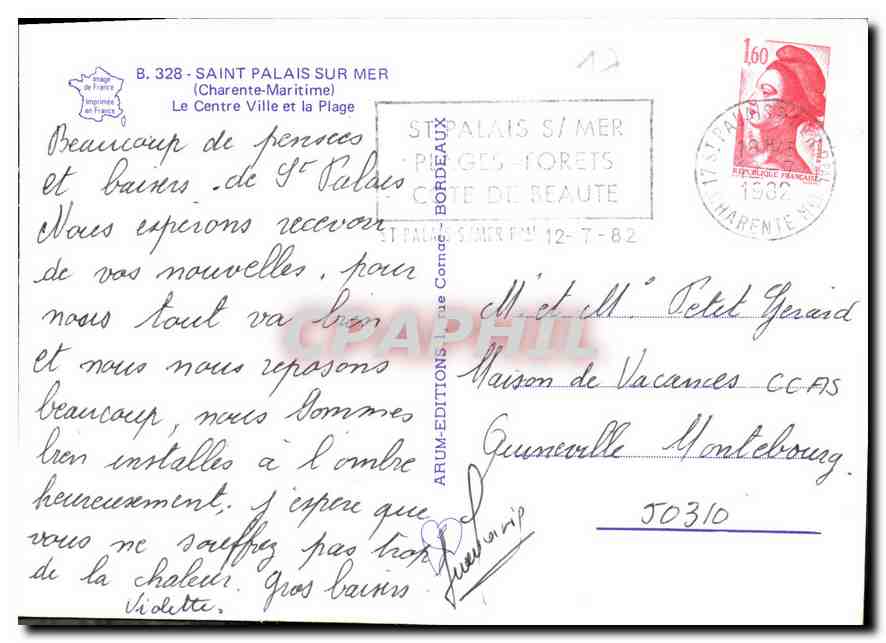 Image
de France
Imprimée
en France
B. 328 - SAINT PALAIS SUR MER
(Charente-Maritime)
Le Centre Ville et la Plage
Beaucoup de pensées
et baisers de St Palais
Nous espérons recevoir
de vos nouvelles. pour
nous tout va bien
et nous nous reposons
beaucoup, nous sommes
bien installés à l'ombre
heureusement. j'espère que
vous ne souffrez pas trop
de la chaleur. Gros baisers
Violette.
ARUM-EDITIONS 1, rue Cornac - BORDEAUX
17
ST PALAIS S/ MER
PLAGES - FORETS
COTE DE BEAUTE
ST PALAIS S/MER Pal 12-7-82
1,60
REPUBLIQUE FRANÇAISE
17 ST PALAIS S
1982
CHARENTE
Mr et Me Petit Gerard
Maison de Vacances CCAS
Quineville Montebourg
50310
CPAPHIL